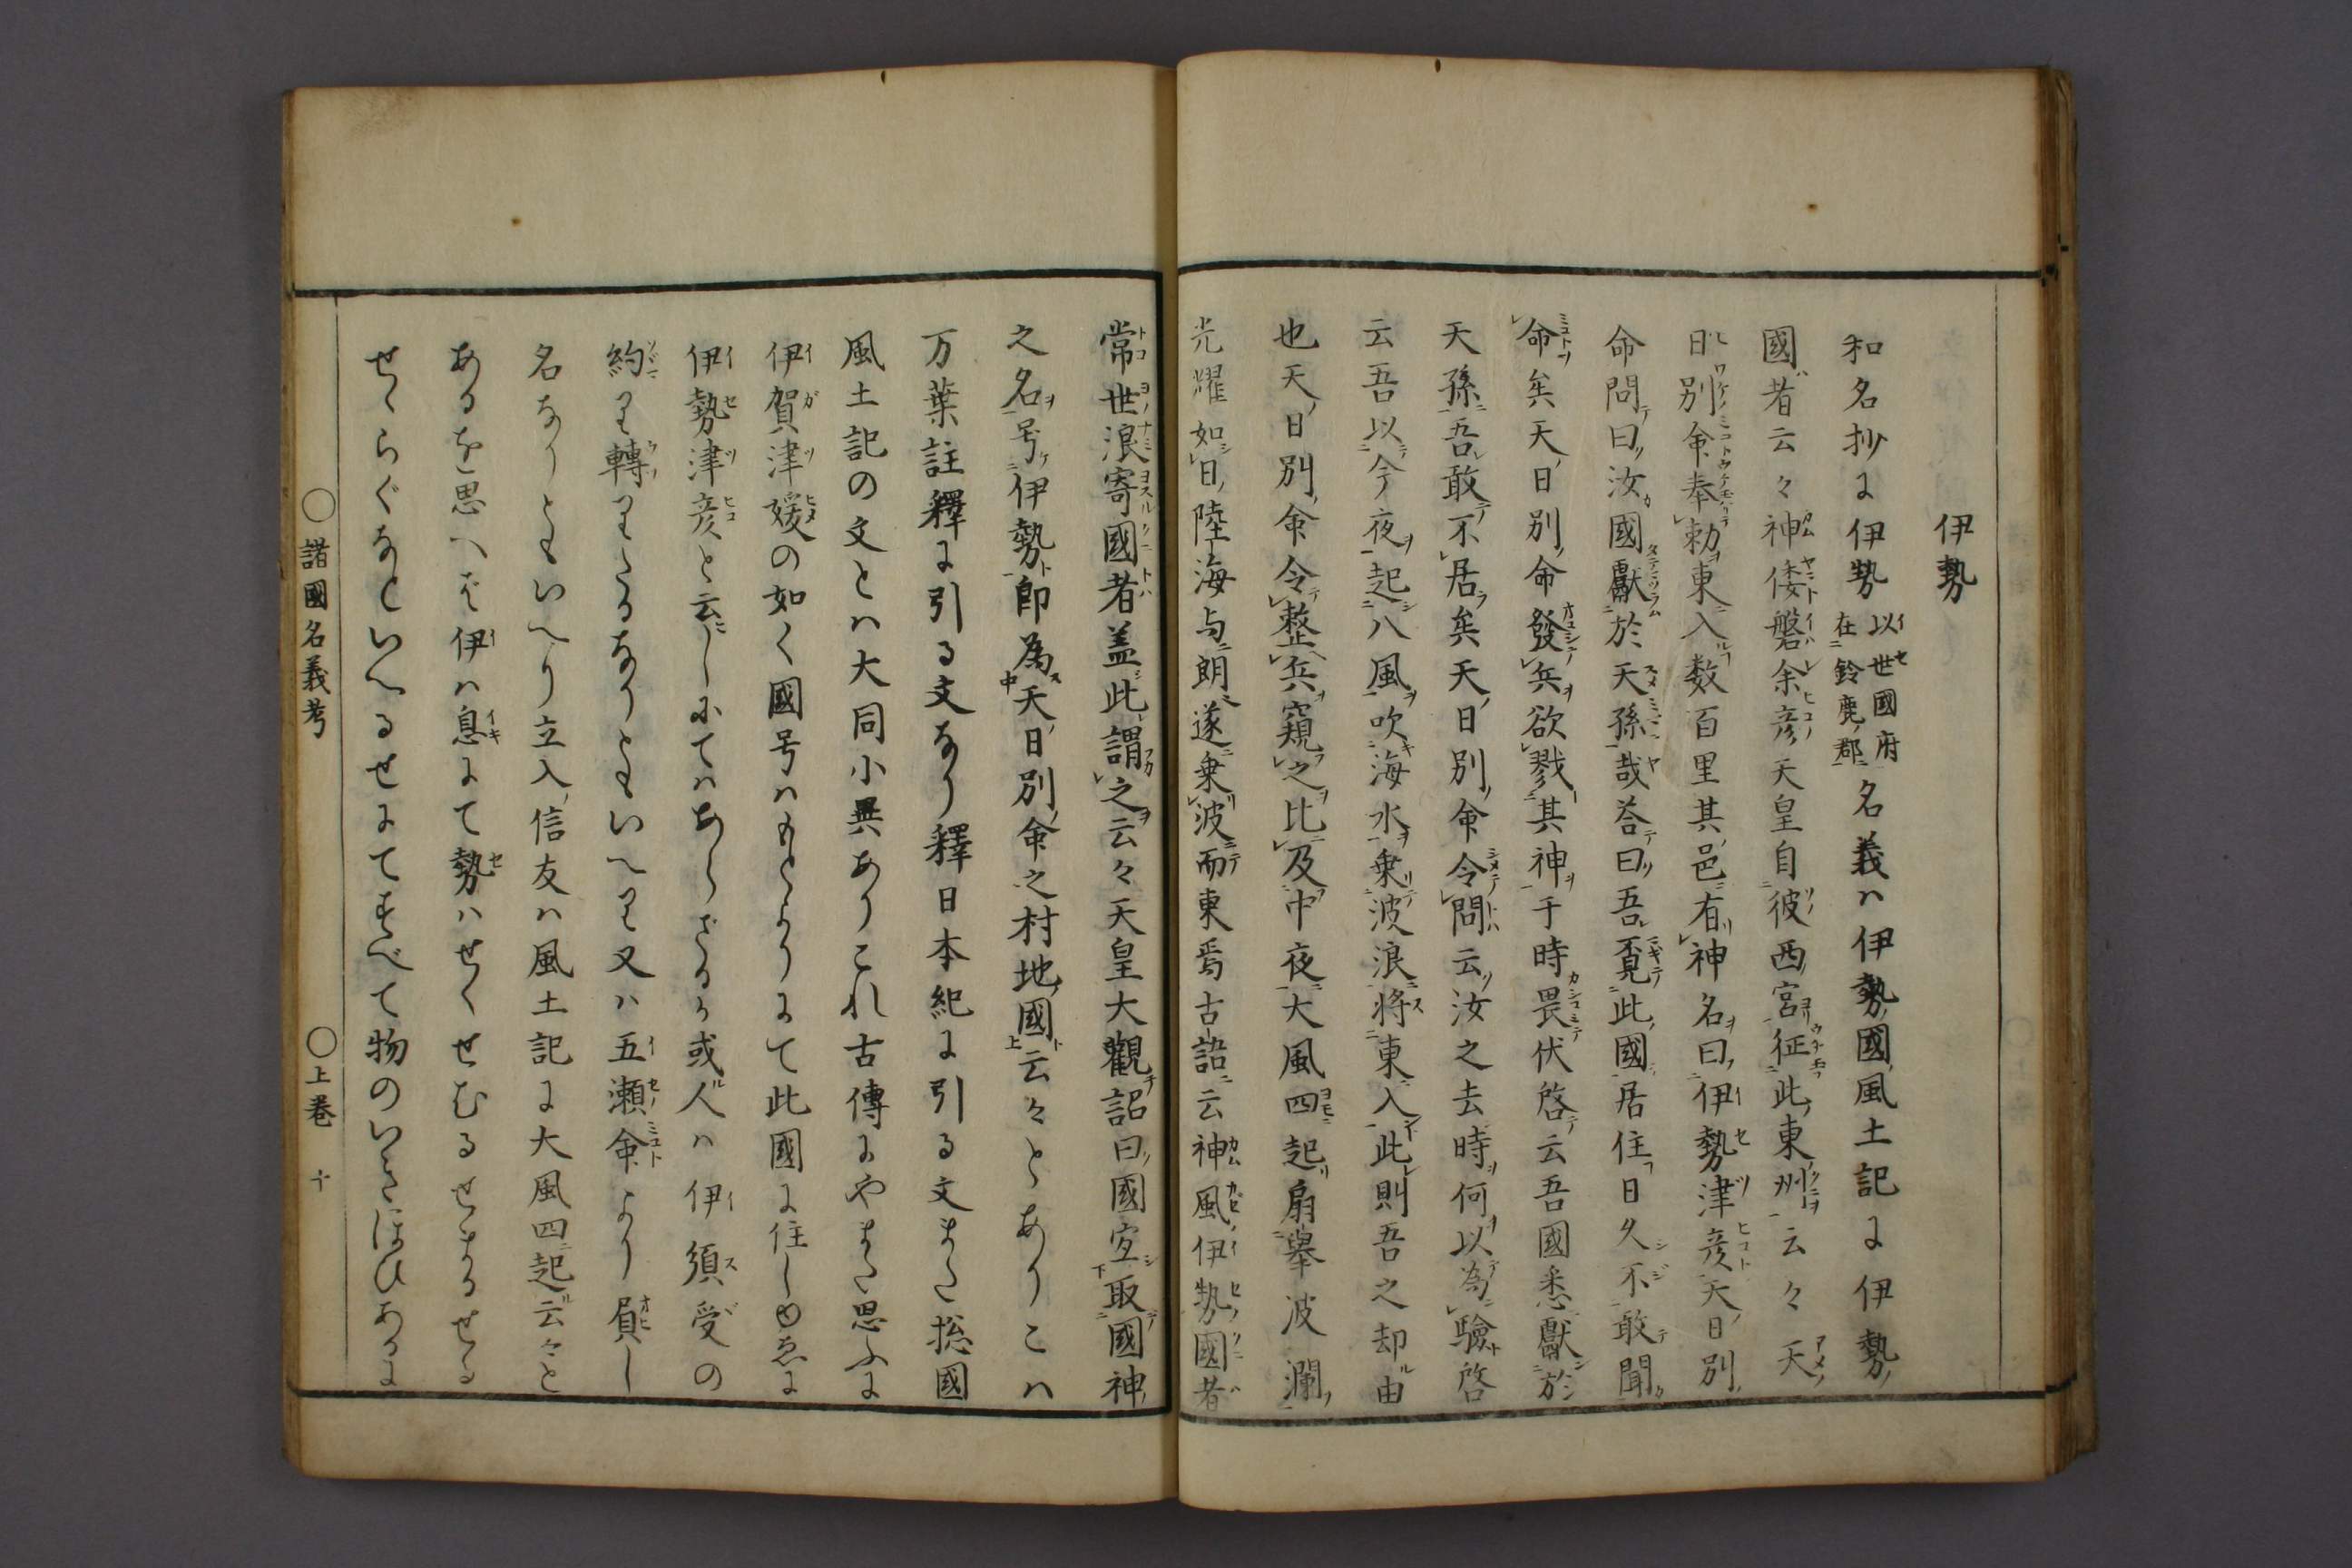 伊勢
和名抄に伊勢以世國府在鈴鹿郡名義ハ伊勢國風土記に伊勢
國者云々神倭磐余彦天皇自彼西宮征此東洲云々天
日別命奉勅東入数百里其邑有神名曰伊勢津彦天日別
命問曰汝國獻於天孫哉荅曰吾覔此國居住日久不敢聞
命矣天日別命發兵欲戮其神于時畏伏啓云吾國悉獻於
天孫吾敢不居矣天日別命令問云汝之去時何以為驗啓
云吾以今夜起八風吹海水乗波浪将東入此則吾之却由
也天日別命令整兵窺之比及中夜大風四起扇舉波瀾
光耀如日陸海与朗遂乗波而東焉古語云神風伊勢國者
常世浪寄國者盖此謂之云々天皇大觀詔曰國宜取國神
之名号伊勢即為天日別命之村地國云々とありこハ
万葉註釋に引る文なり釋日本紀に引る文また総國
風土記の文とハ大同小異ありこれ古傳にやまた思ふに
伊賀津媛の如く國号ハもとよりにて此國に住しゆゑに
伊勢津彦と云しにてハあらざるか或人ハ伊須受の
約り轉りたるなりともいへり又ハ五瀬命より屓し
名なりともいへり立入信友ハ風土記に大風四起云々と
あるを思へば伊ハ息にて勢ハせくせむるせまるせる
せゝらぐなといへるせにてすべて物のいきほひあるに
○諸國名義考 ○上巻 十